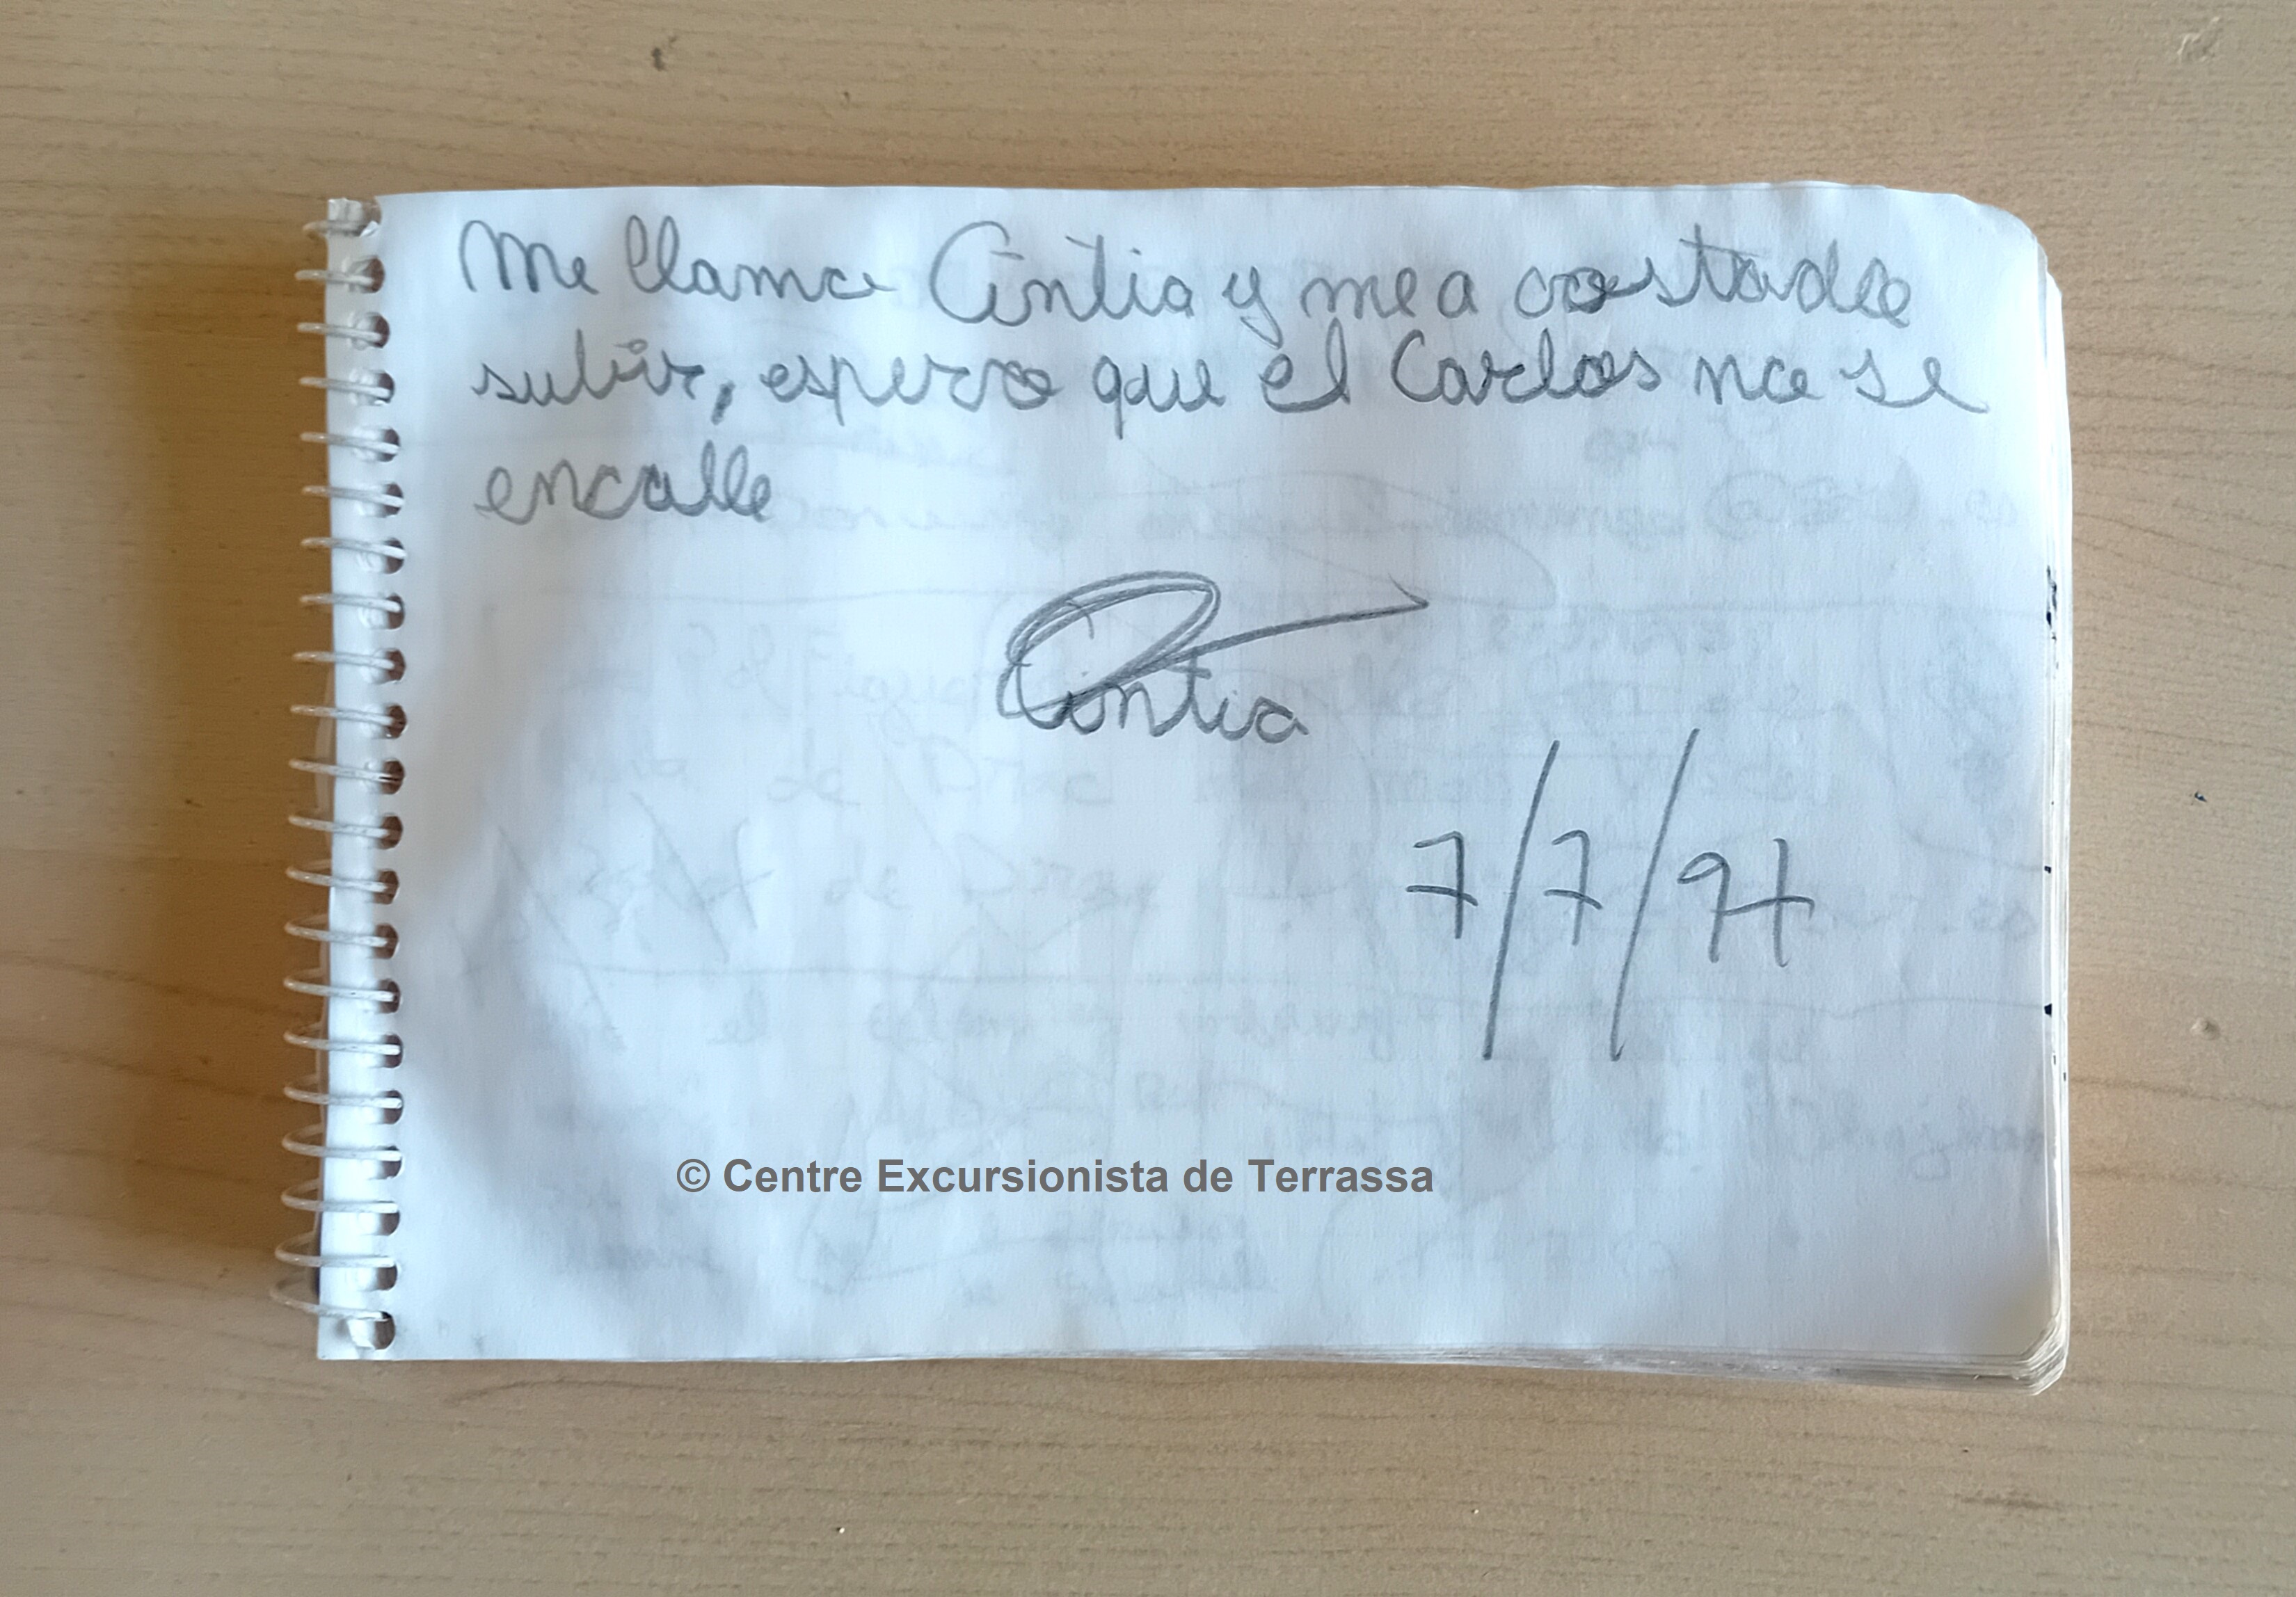 Me llamo Cintia y me a costado
subir, espero que el Carlos no se
encalle
Cintia
7/7/97
© Centre Excursionista de Terrassa